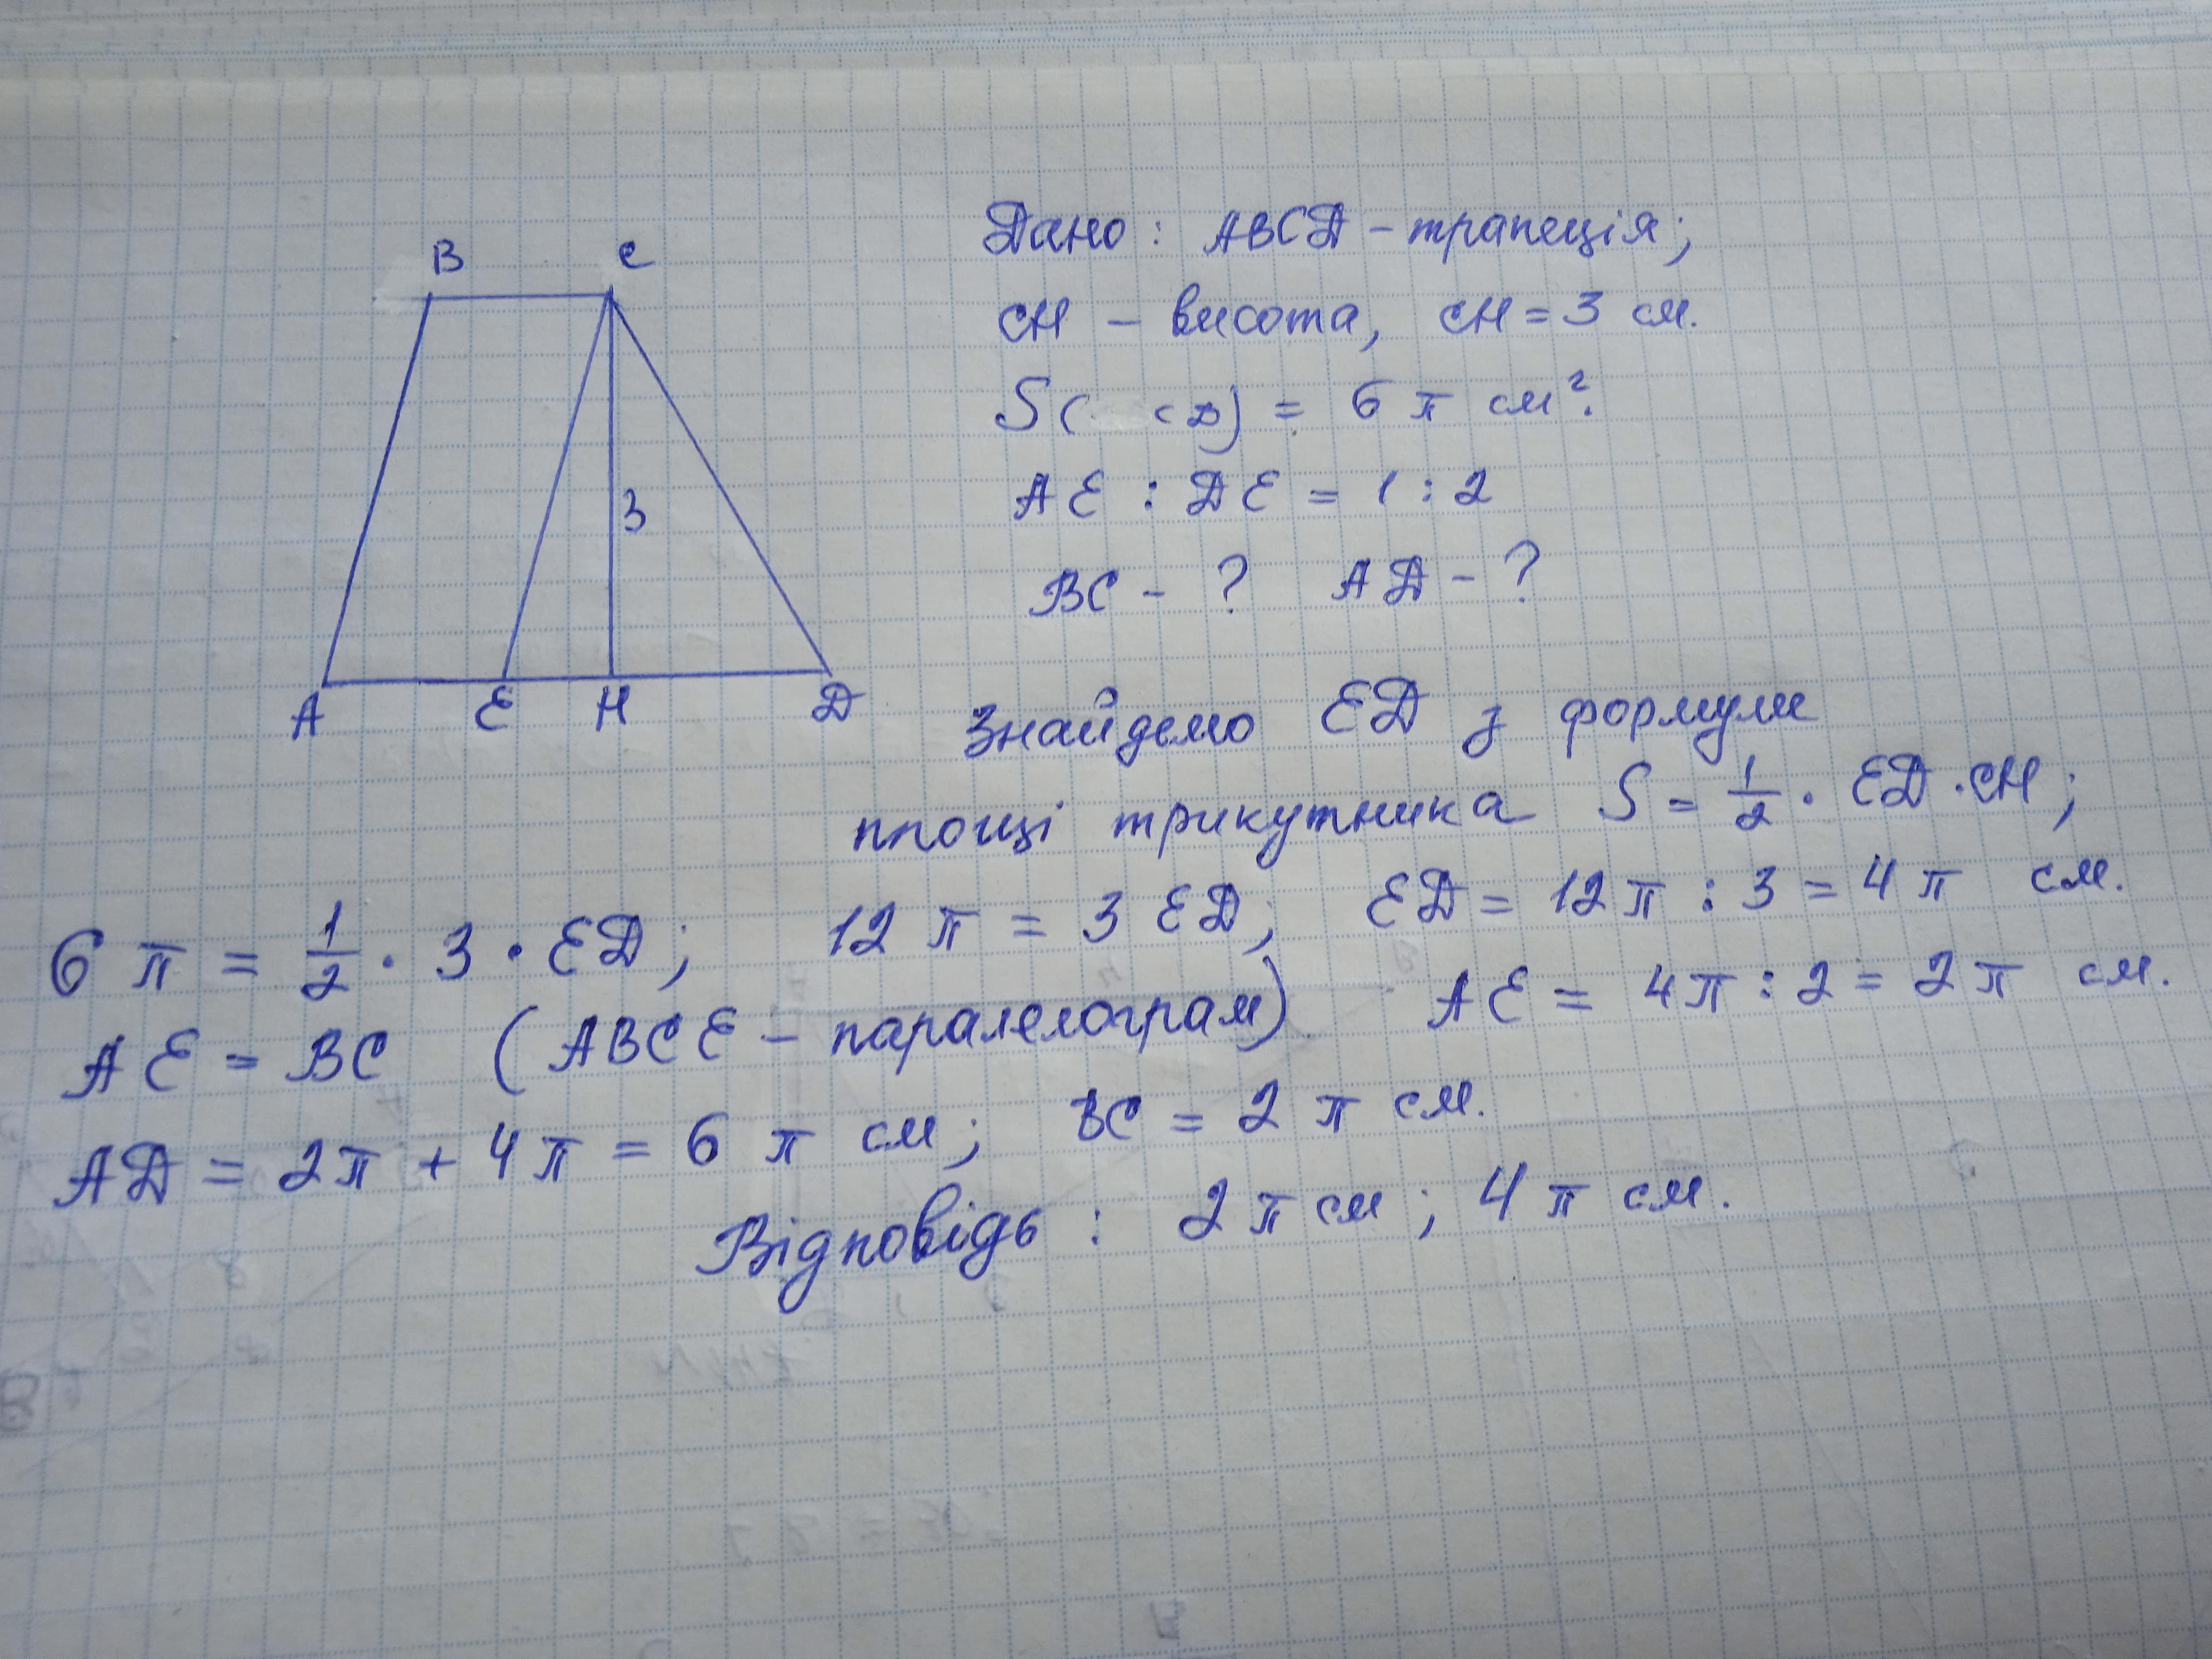 B C
Дано: ABCД - трапеція;
CH - висота, CH = 3 см.
S( CД) = 6 π см².
3
AE : ДE = 1 : 2
BC - ? AД - ?
A E H Д
Знайдемо EД з формули
площі трикутника S = 1/2 · EД · CH;
6 π = 1/2 · 3 · EД; 12 π = 3 EД; EД = 12 π : 3 = 4 π см.
AE = BC (ABCE - паралелограм) AE = 4π : 2 = 2 π см.
AД = 2π + 4π = 6 π см; BC = 2 π см.
Відповідь: 2 π см; 4 π см.